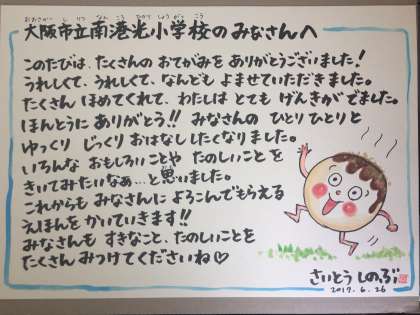 大阪市立南港光小学校のみなさんへ
おおさかしりつなんこうひかりしょうがっこう
このたびは、たくさんの おてがみを ありがとうございました！
うれしくて、うれしくて、なんども よませていただきました。
たくさん ほめてくれて、わたしは とても げんきがでました。
ほんとうに ありがとう!! みなさんの ひとり ひとりと
ゆっくり じっくり おはなし したくなりました。
いろんな おもしろいことや たのしいことを
きいてみたいなぁ…と 思いました。
これからも みなさんに よろこんでもらえる
えほんを かいていきます!!
みなさんも すきなこと、たのしいことを
たくさん みつけてくださいね♡
さいとう しのぶ
2017. 6. 26